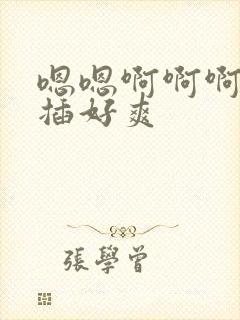 嗯嗯啊啊啊
插好爽
張學曾